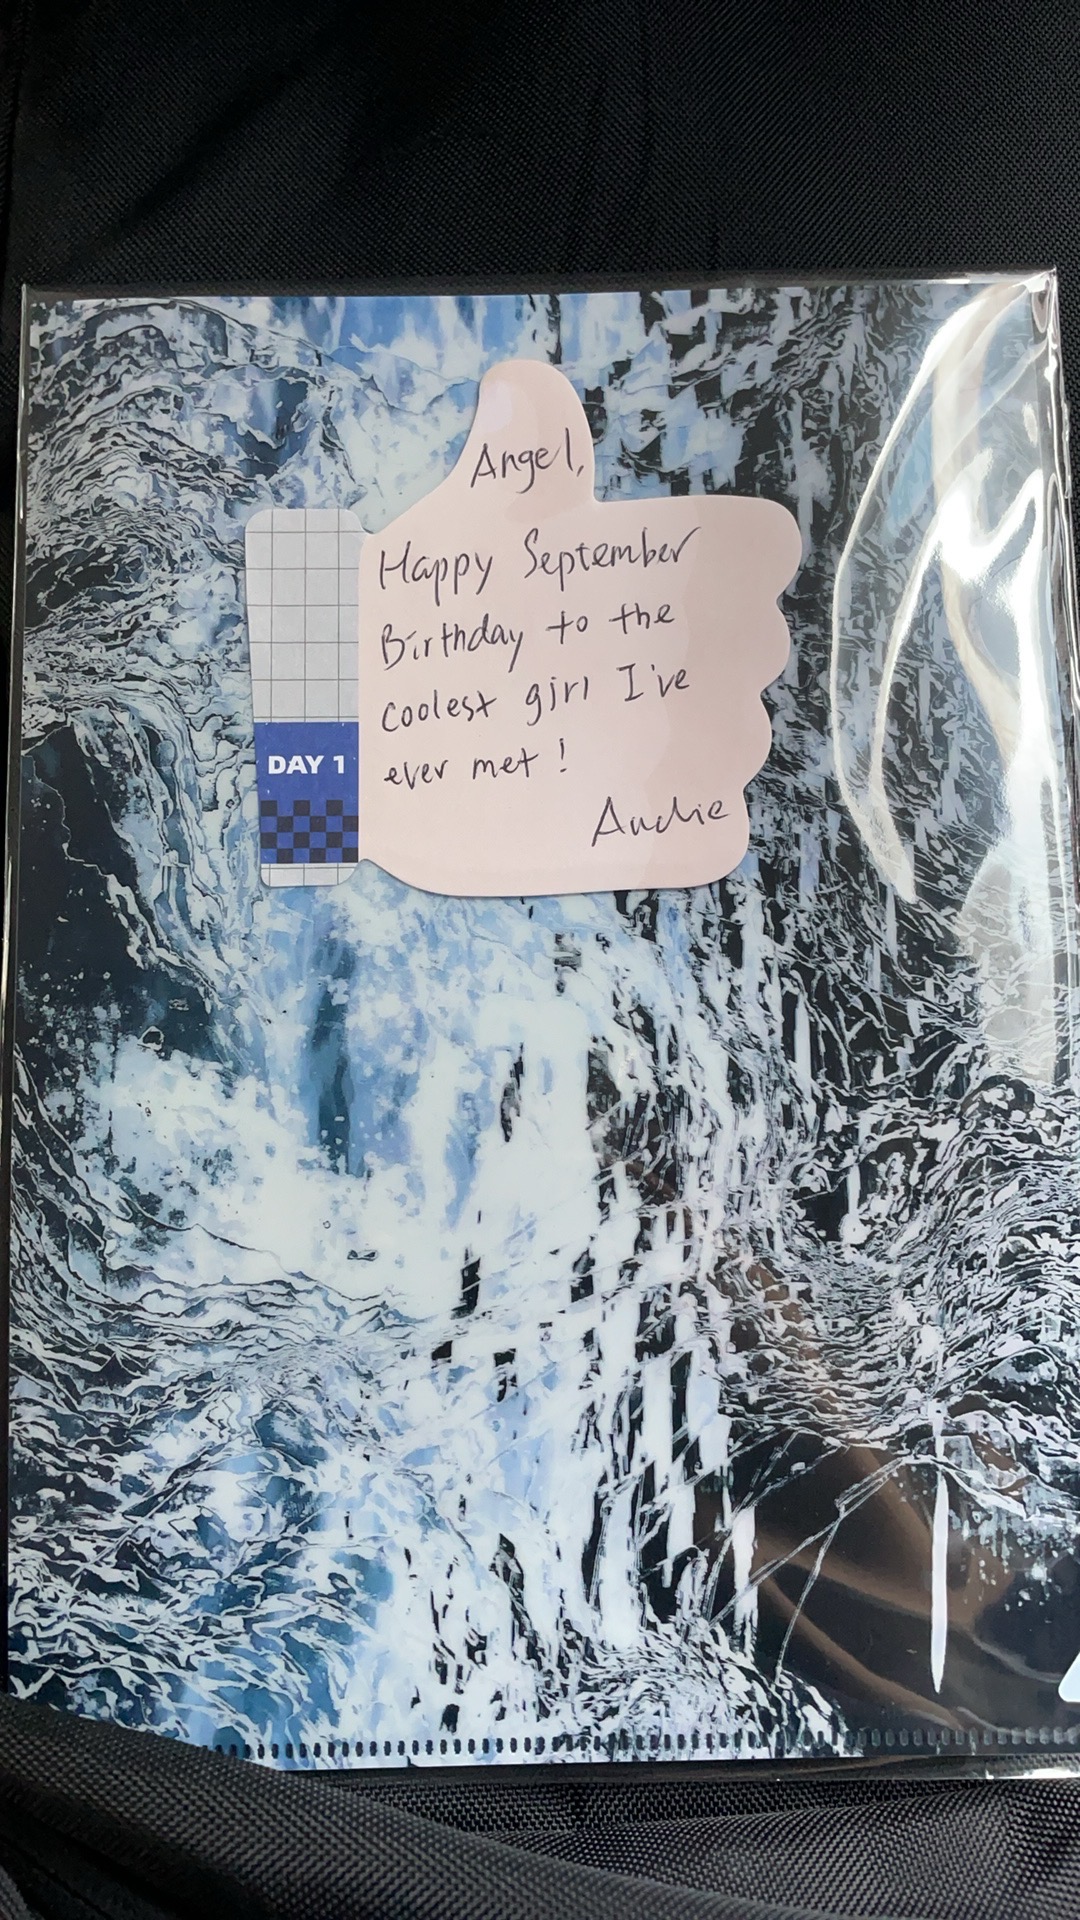 Angel,
Happy September
Birthday to the
coolest girl I've
ever met!
Audie
DAY 1